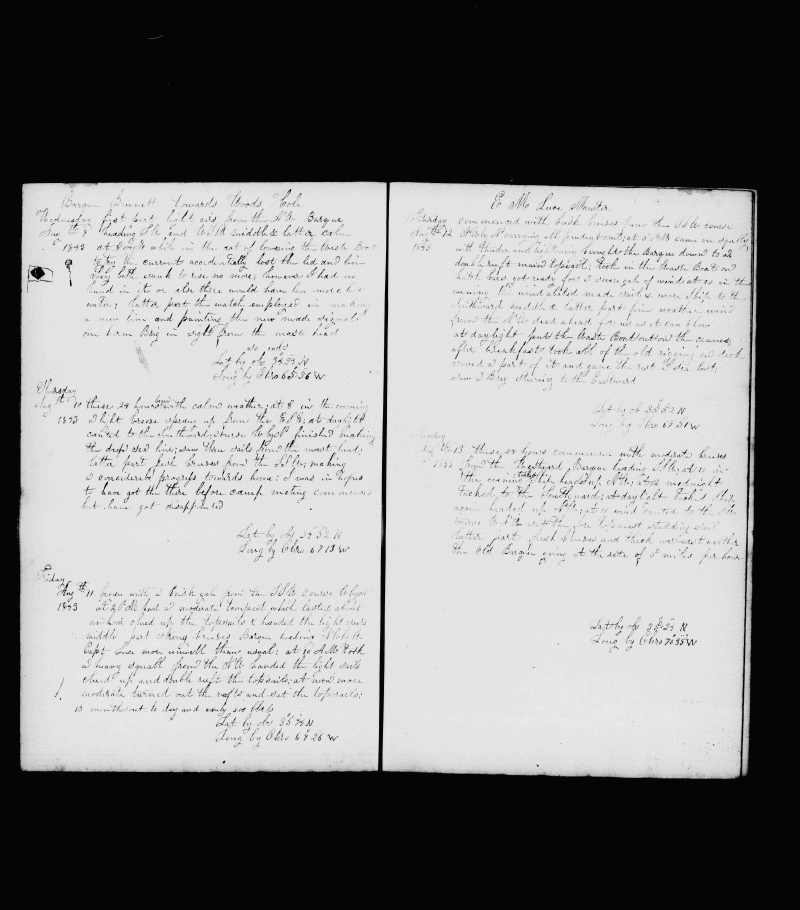 Barque Bennett towards Woods Hole
Wednesday first part light airs from the NW Barque
Aug th 9 heading SW and WSW middle & latter calm
1843 at 6 o'clk while in the act of lowering the Waste Boat
to try the current accidentally lost the lid and line
they both sunk to rise no more; however I had no
hand in it or else there would have been more hot
water; latter part the watch employed in making
a new line and painting the new made signal
one herm Brig in sight from the mast head
Lat by obs N
Long by Chro 65 56 W
Thursday
Aug th 10 these 24 hours begins with calm weather; at 8 in the evening
1843 a light breeze sprung up from the ESE; at daylight
canted to the Southward; course W by N finished making
the deep sea line; saw three sails from the mast head;
latter part fresh breezes from the SSW; making
a considerable progress towards home; I was in hopes
to have got there before camp meeting commences
but have got disappointed
Lat by obs 35 32 N
Long by Chro 67 13 W
Friday
Aug th 11 begins with a brisk gale from the SSW course W by N
1843 at 2 PM had a moderate tempest which lasted about
an hour clued up the topsails & handed the light sails
middle part strong breezes Barque heading
Capt Luce more unwell than usual; at 10 AM took
a heavy squall from the NW handed the light sails
clued up and double reeft the topsails; at noon more
moderate turned out the reefts and set the topsails;
13 months out to day and only 500 bbls
Lat by obs N
Long by Chro 69 26 W
E Mc Luce Master
Saturday commenced with brisk breezes from the SSW course
Aug th 12 carrying all prudent sail; at 5 PM came on squally
1843 with thunder and lightning brought the Barque down to a
double reeft main topsail; took in the Waste Boat and
hatch bars got ready for a overgale of wind at 10 in the
evening wind abated made sail & wore Ship to the
Southward middle & latter part fine weather wind
from the NW dead ahead for us as it can blow
at daylight put the Waste Boat out on the cranes;
after breakfast took all of the old rigging on deck
a part of it and gave the rest
saw a Brig stearing to the Eastward
Lat by ob N
Long by Chro W
Sunday
Aug th 13 These 24 hours commences with moderate breezes
1843 from the Westward Barque heading
the evening tacked Ship headed up NW; at 12 midnight
tacked to the Southward; at daylight tack'd Ship
again headed up wind canted to the SW
set the fore topmast studding sail
latter part fresh breezes and thick overcast weather
the Old Barque going at the rate of 8 miles per hour
Lat by obs N
Long by Chro 70 35 W